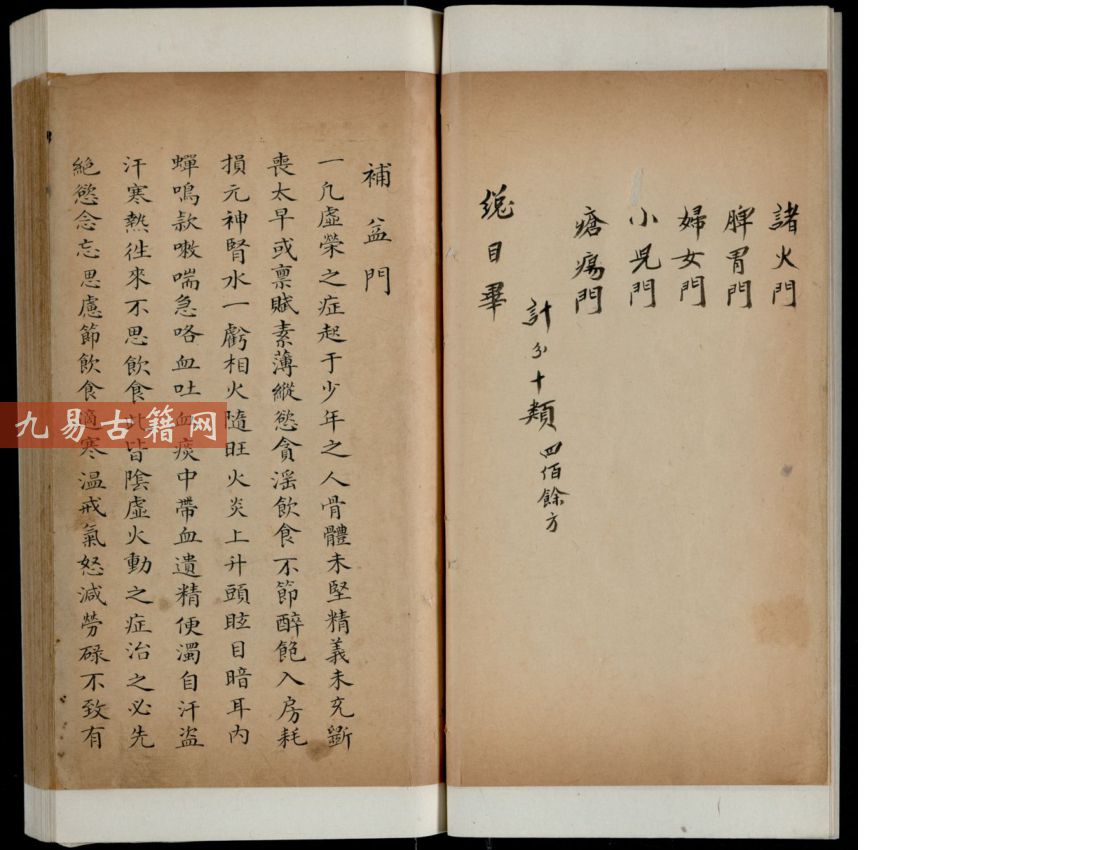 諸火門
脾胃門
婦女門
小児門
瘡瘍門
計分十類 四佰餘方
總目畢
補益門
一凡虛榮之症起于少年之人骨體未堅精義未充斷
喪太早或禀賦素薄縱慾貪滛飲食不節醉飽入房耗
損元神腎水一虧相火隨旺火炎上升頭眩目暗耳内
蟬鳴欬嗽喘急咯血吐血痰中帶血遺精便濁自汗盜
汗寒熱徃來不思飲食此皆陰虛火動之症治之必先
絕慾念忘思慮節飲食適寒温戒氣怒減勞碌不致有
九易古籍网